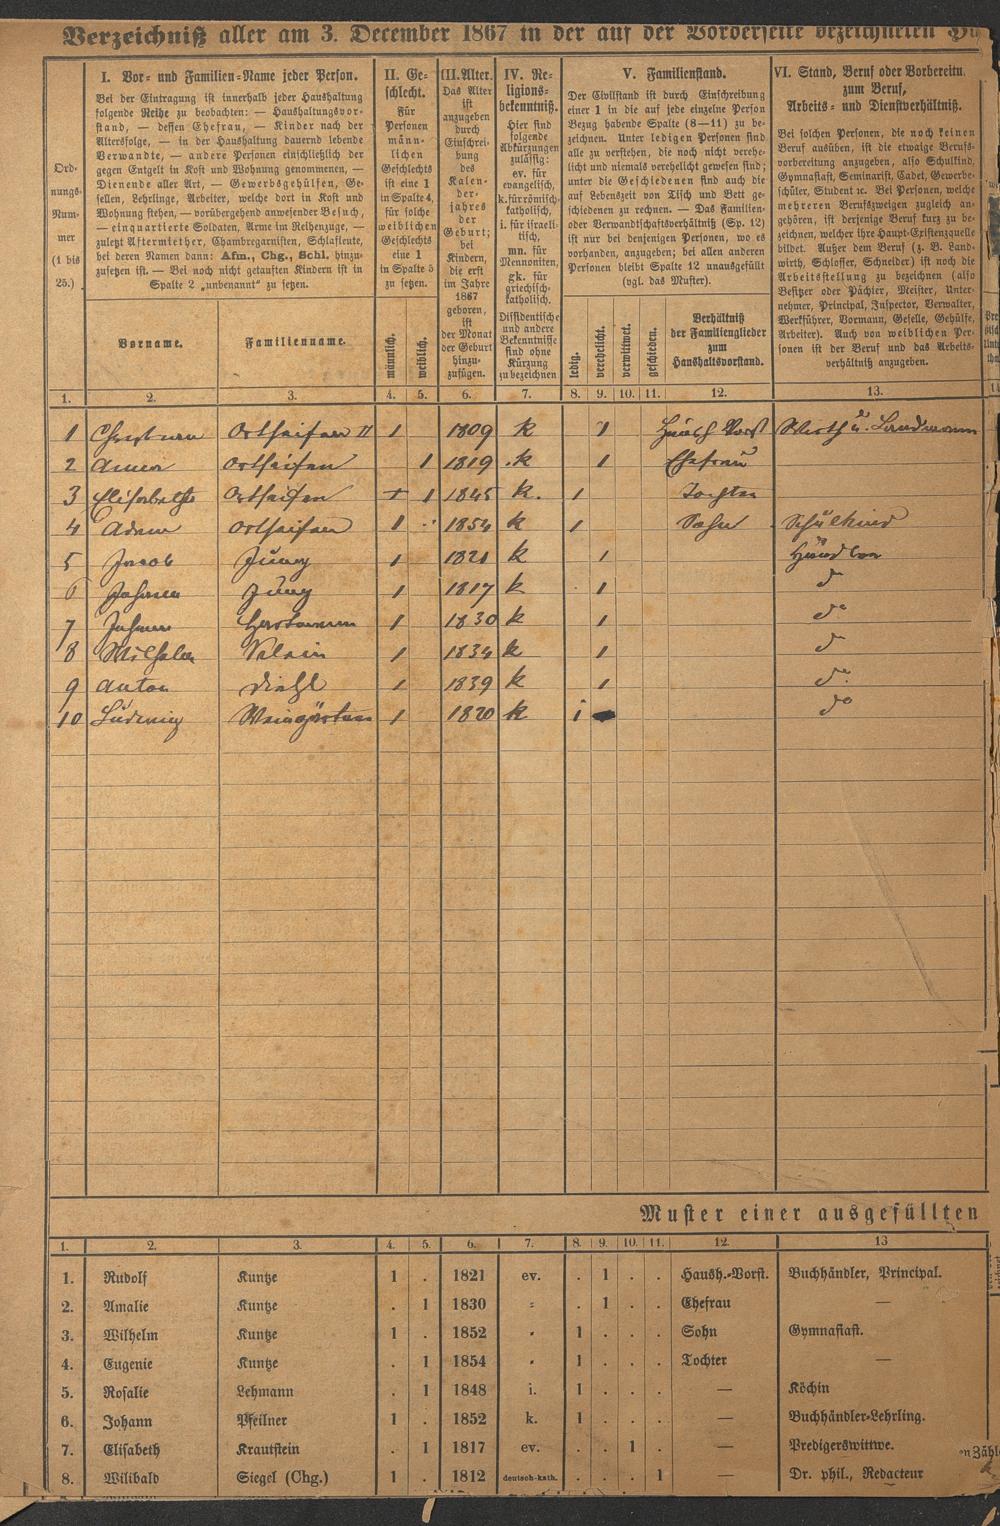 Verzeichniß aller am 3. December 1867 in der auf der Vorderseite bezeichneten
Ord-
nungs-
Num-
mer
(1 bis
25.)
I. Vor- und Familien-Name jeder Person.
Bei der Eintragung ist innerhalb jeder Haushaltung
folgende Reihe zu beobachten: — Haushaltungsvor-
stand, — dessen Ehefrau, — Kinder nach der
Altersfolge, — in der Haushaltung dauernd lebende
Verwandte, — andere Personen einschließlich der
gegen Entgelt in Kost und Wohnung genommenen, —
Dienende aller Art, — Gewerbsgehülfen, Ge-
sellen, Lehrlinge, Arbeiter, welche dort in Kost und
Wohnung stehen, — vorübergehend anwesender Besuch,
— einquartierte Soldaten, Arme im Reihenzuge, —
zuletzt Aftermiether, Chambregarnisten, Schlafleute,
bei deren Namen dann: Afm., Chg., Schl. hinzu-
zusetzen ist. — Bei noch nicht getauften Kindern ist in
Spalte 2 „unbenannt" zu setzen.
Vorname.
Familienname.
II. Ge-
schlecht.
Für
Personen
männ-
lichen
Geschlechts
ist eine 1
in Spalte 4,
für solche
weiblichen
Geschlechts
eine 1
in Spalte 5
zu setzen.
männlich.
weiblich.
III. Alter.
Das Alter
ist
anzugeben
durch
Einschrei-
bung
des
Kalen-
der-
jahres
der
Geburt;
bei
Kindern,
die erst
im Jahre
1867
geboren,
ist
der Monat
der Geburt
hinzu-
zufügen.
IV. Re-
ligions-
bekenntniß.
Hier sind
folgende
Abkürzungen
zulässig:
ev. für
evangelisch,
k. für römisch-
katholisch,
i. für israeli-
tisch,
mn. für
Mennoniten,
gk. für
griechisch-
katholisch.
Dissidentische
und andere
Bekenntnisse
sind ohne
Kürzung
zu bezeichnen
V. Familienstand.
Der Civilstand ist durch Einschreibung
einer 1 in die auf jede einzelne Person
Bezug habende Spalte (8—11) zu be-
zeichnen. Unter ledigen Personen sind
alle zu verstehen, die noch nicht verehe-
licht und niemals verehelicht gewesen sind;
unter die Geschiedenen sind auch die
auf Lebenszeit von Tisch und Bett ge-
schiedenen zu rechnen. — Das Familien-
oder Verwandtschaftsverhältniß (Sp. 12)
ist nur bei denjenigen Personen, wo es
vorhanden, anzugeben; bei allen anderen
Personen bleibt Spalte 12 unausgefüllt
(vgl. das Muster).
ledig.
verehelicht.
verwittwet.
geschieden.
Verhältniß
der Familienglieder
zum
Haushaltsvorstand.
VI. Stand, Beruf oder Vorbereitu
zum Beruf,
Arbeits- und Dienstverhältniß.
Bei solchen Personen, die noch keinen
Beruf ausüben, ist die etwaige Berufs-
vorbereitung anzugeben, also Schulkind,
Gymnasiast, Seminarist, Cadet, Gewerbe-
schüler, Student ꝛc. Bei Personen, welche
mehreren Berufszweigen zugleich an-
gehören, ist derjenige Beruf kurz zu be-
zeichnen, welcher ihre Haupt-Existenzquelle
bildet. Außer dem Beruf (z. B. Land-
wirth, Schlosser, Schneider) ist noch die
Arbeitsstellung zu bezeichnen (also
Besitzer oder Pächter, Meister, Unter-
nehmer, Principal, Inspector, Verwalter,
Werkführer, Vormann, Geselle, Gehülfe,
Arbeiter). Auch von weiblichen Per-
sonen ist der Beruf und das Arbeits-
verhältniß anzugeben.
1. 2. 3. 4. 5. 6. 7. 8. 9. 10. 11. 12. 13.
1 Christian Ortseifen II 1 1809 k 1 Haush Vorst Wirth u. Landmann
2 Anna Ortseifen 1 1819 k 1 Ehefrau
3 Elisabetha Ortseifen 1 1845 k. 1 Tochter
4 Adam Ortseifen 1 1854 k 1 Sohn Schulkind
5 Jacob Jung 1 1821 k 1 Händler
6 Johann Jung 1 1817 k 1 do
7 Johann Hartmann 1 1830 k 1 do
8 Wilhelm 1 1834 k 1 do
9 Anton Diehl 1 1839 k 1 do
10 Ludwig Weingarten 1 1820 k 1 do
Muster einer ausgefüllten
1. 2. 3. 4. 5. 6. 7. 8. 9. 10. 11. 12. 13
1. Rudolf Kuntze 1 . 1821 ev. . 1 . . Haush.-Vorst. Buchhändler, Principal.
2. Amalie Kuntze . 1 1830 = . 1 . . Ehefrau —
3. Wilhelm Kuntze 1 . 1852 = 1 . . . Sohn Gymnasiast.
4. Eugenie Kuntze . 1 1854 = 1 . . . Tochter —
5. Rosalie Lehmann . 1 1848 i. 1 . . . — Köchin
6. Johann Pfeilner 1 . 1852 k. 1 . . . — Buchhändler-Lehrling.
7. Elisabeth Krautstein . 1 1817 ev. . . 1 . — Predigerswittwe.
8. Wilibald Siegel (Chg.) 1 . 1812 deutsch-kath. . . . 1 — Dr. phil., Redacteur